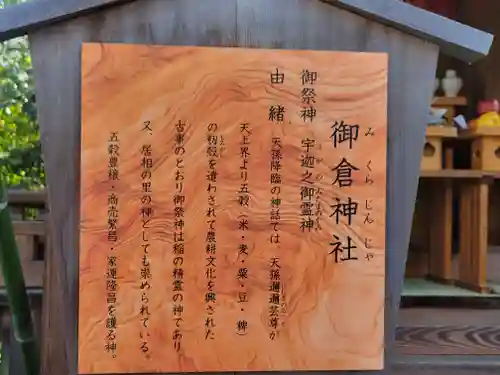 御倉神社
みくらじんじゃ
御祭神 宇迦之御霊神
由緒 天孫降臨の神話では、天孫邇邇芸尊が
天上界より五穀(米・麦・粟・豆・稗)
の籾殻を遣わされて農耕文化を興された
古事のとおり御祭神は稲の精霊の神であり
又、居相の里の神としても崇められている。
五穀豊穣・商売繁昌・家運隆昌を護る神。